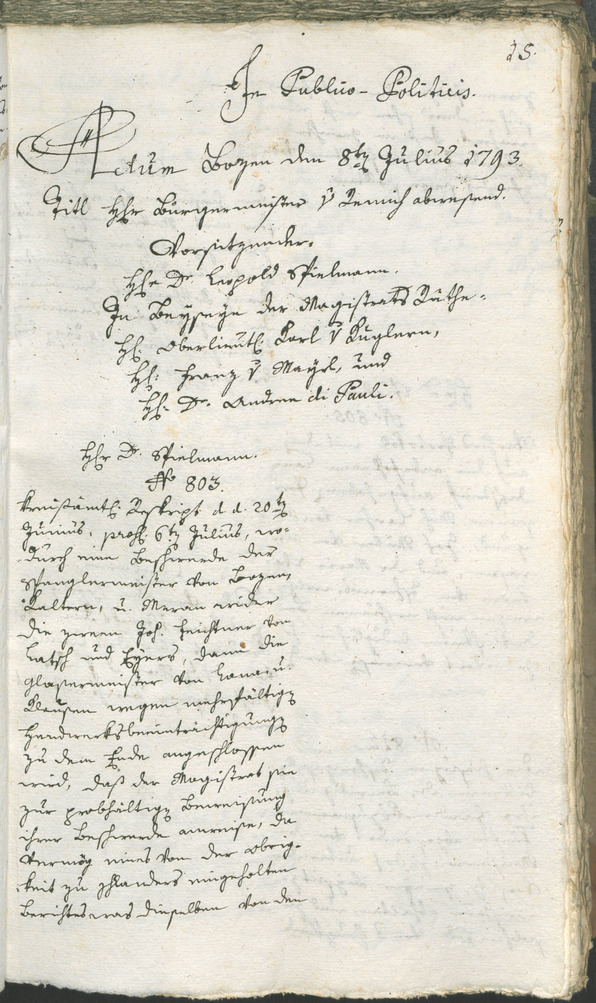 15.
In Publico-Politicis.
Actum Bozen den 8t Julius 1793
Titl Hhr Bürgermeister v Remich abwesend.
Vorsitzender,
Hhr Dr Leopold Spielmann.
In Beyseyn der Magistrats Räthe,
Hh: Oberlieut: Karl v Kuglern,
Hh: Franz v Mayrl, und
Hh: Dr. Andree di Pauli.
Hhr Dr. Spielmann.
No 803.
kreisämtl: Reskript d. d. 20t
Junius, pros: 6t Julius, wo-
durch eine Beschwerde der
Spanglermeister von Bozen,
Kaltern, u. Meran wider
die zween Joh. Feichtner von
Latsch und Eyers, dann die
Glasermeister von Lana u.
Klausen wegen mehrfältig
Handwerksbeeinträchtigung
zu dem Ende angeschlossen
wird, daß der Magistrat sie
zur probhältig Beweisung
ihrer Beschwerde anweise, da
vermög eines von der Obrig-
keit zu Schlanders eingeholten
Berichtes was dieselben von den